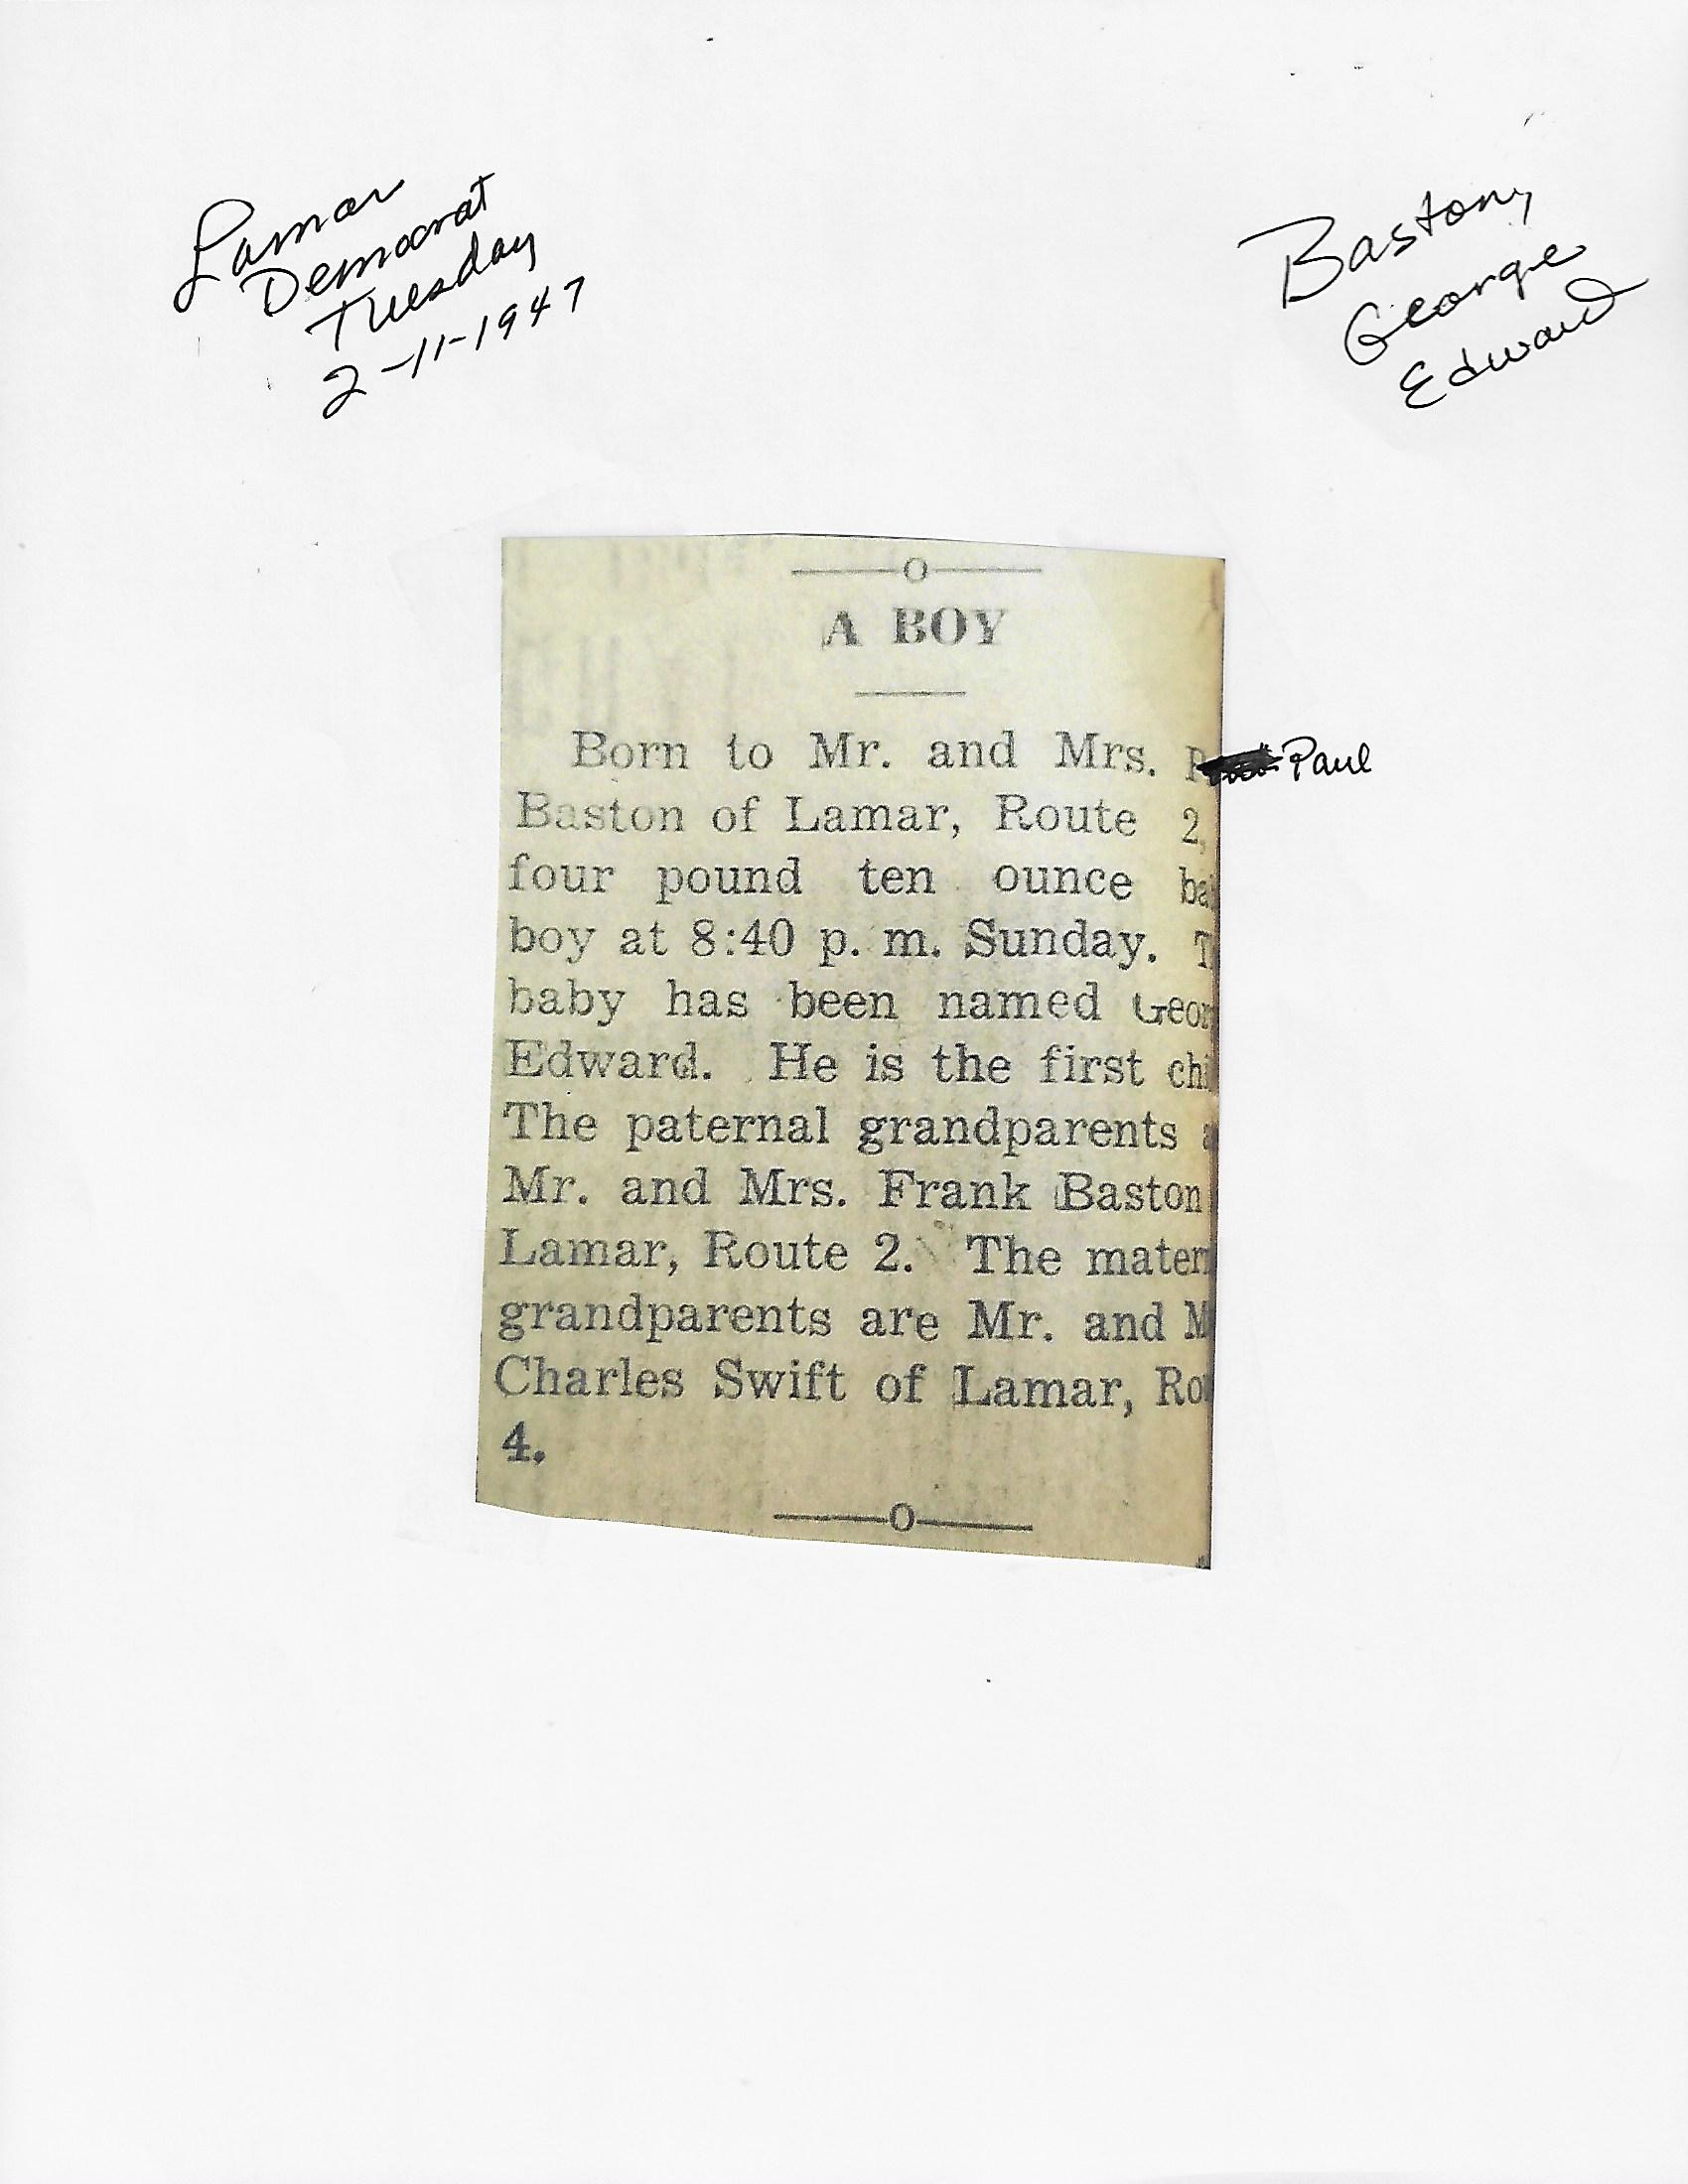 Lamar
Democrat
Tuesday
2-11-1947
Baston,
George
Edward
A BOY
Born to Mr. and Mrs. P
Paul
Baston of Lamar, Route 2,
four pound ten ounce ba
boy at 8:40 p. m. Sunday. T
baby has been named Geor
Edward. He is the first chi
The paternal grandparents a
Mr. and Mrs. Frank Baston
Lamar, Route 2. The matern
grandparents are Mr. and M
Charles Swift of Lamar, Rou
4.